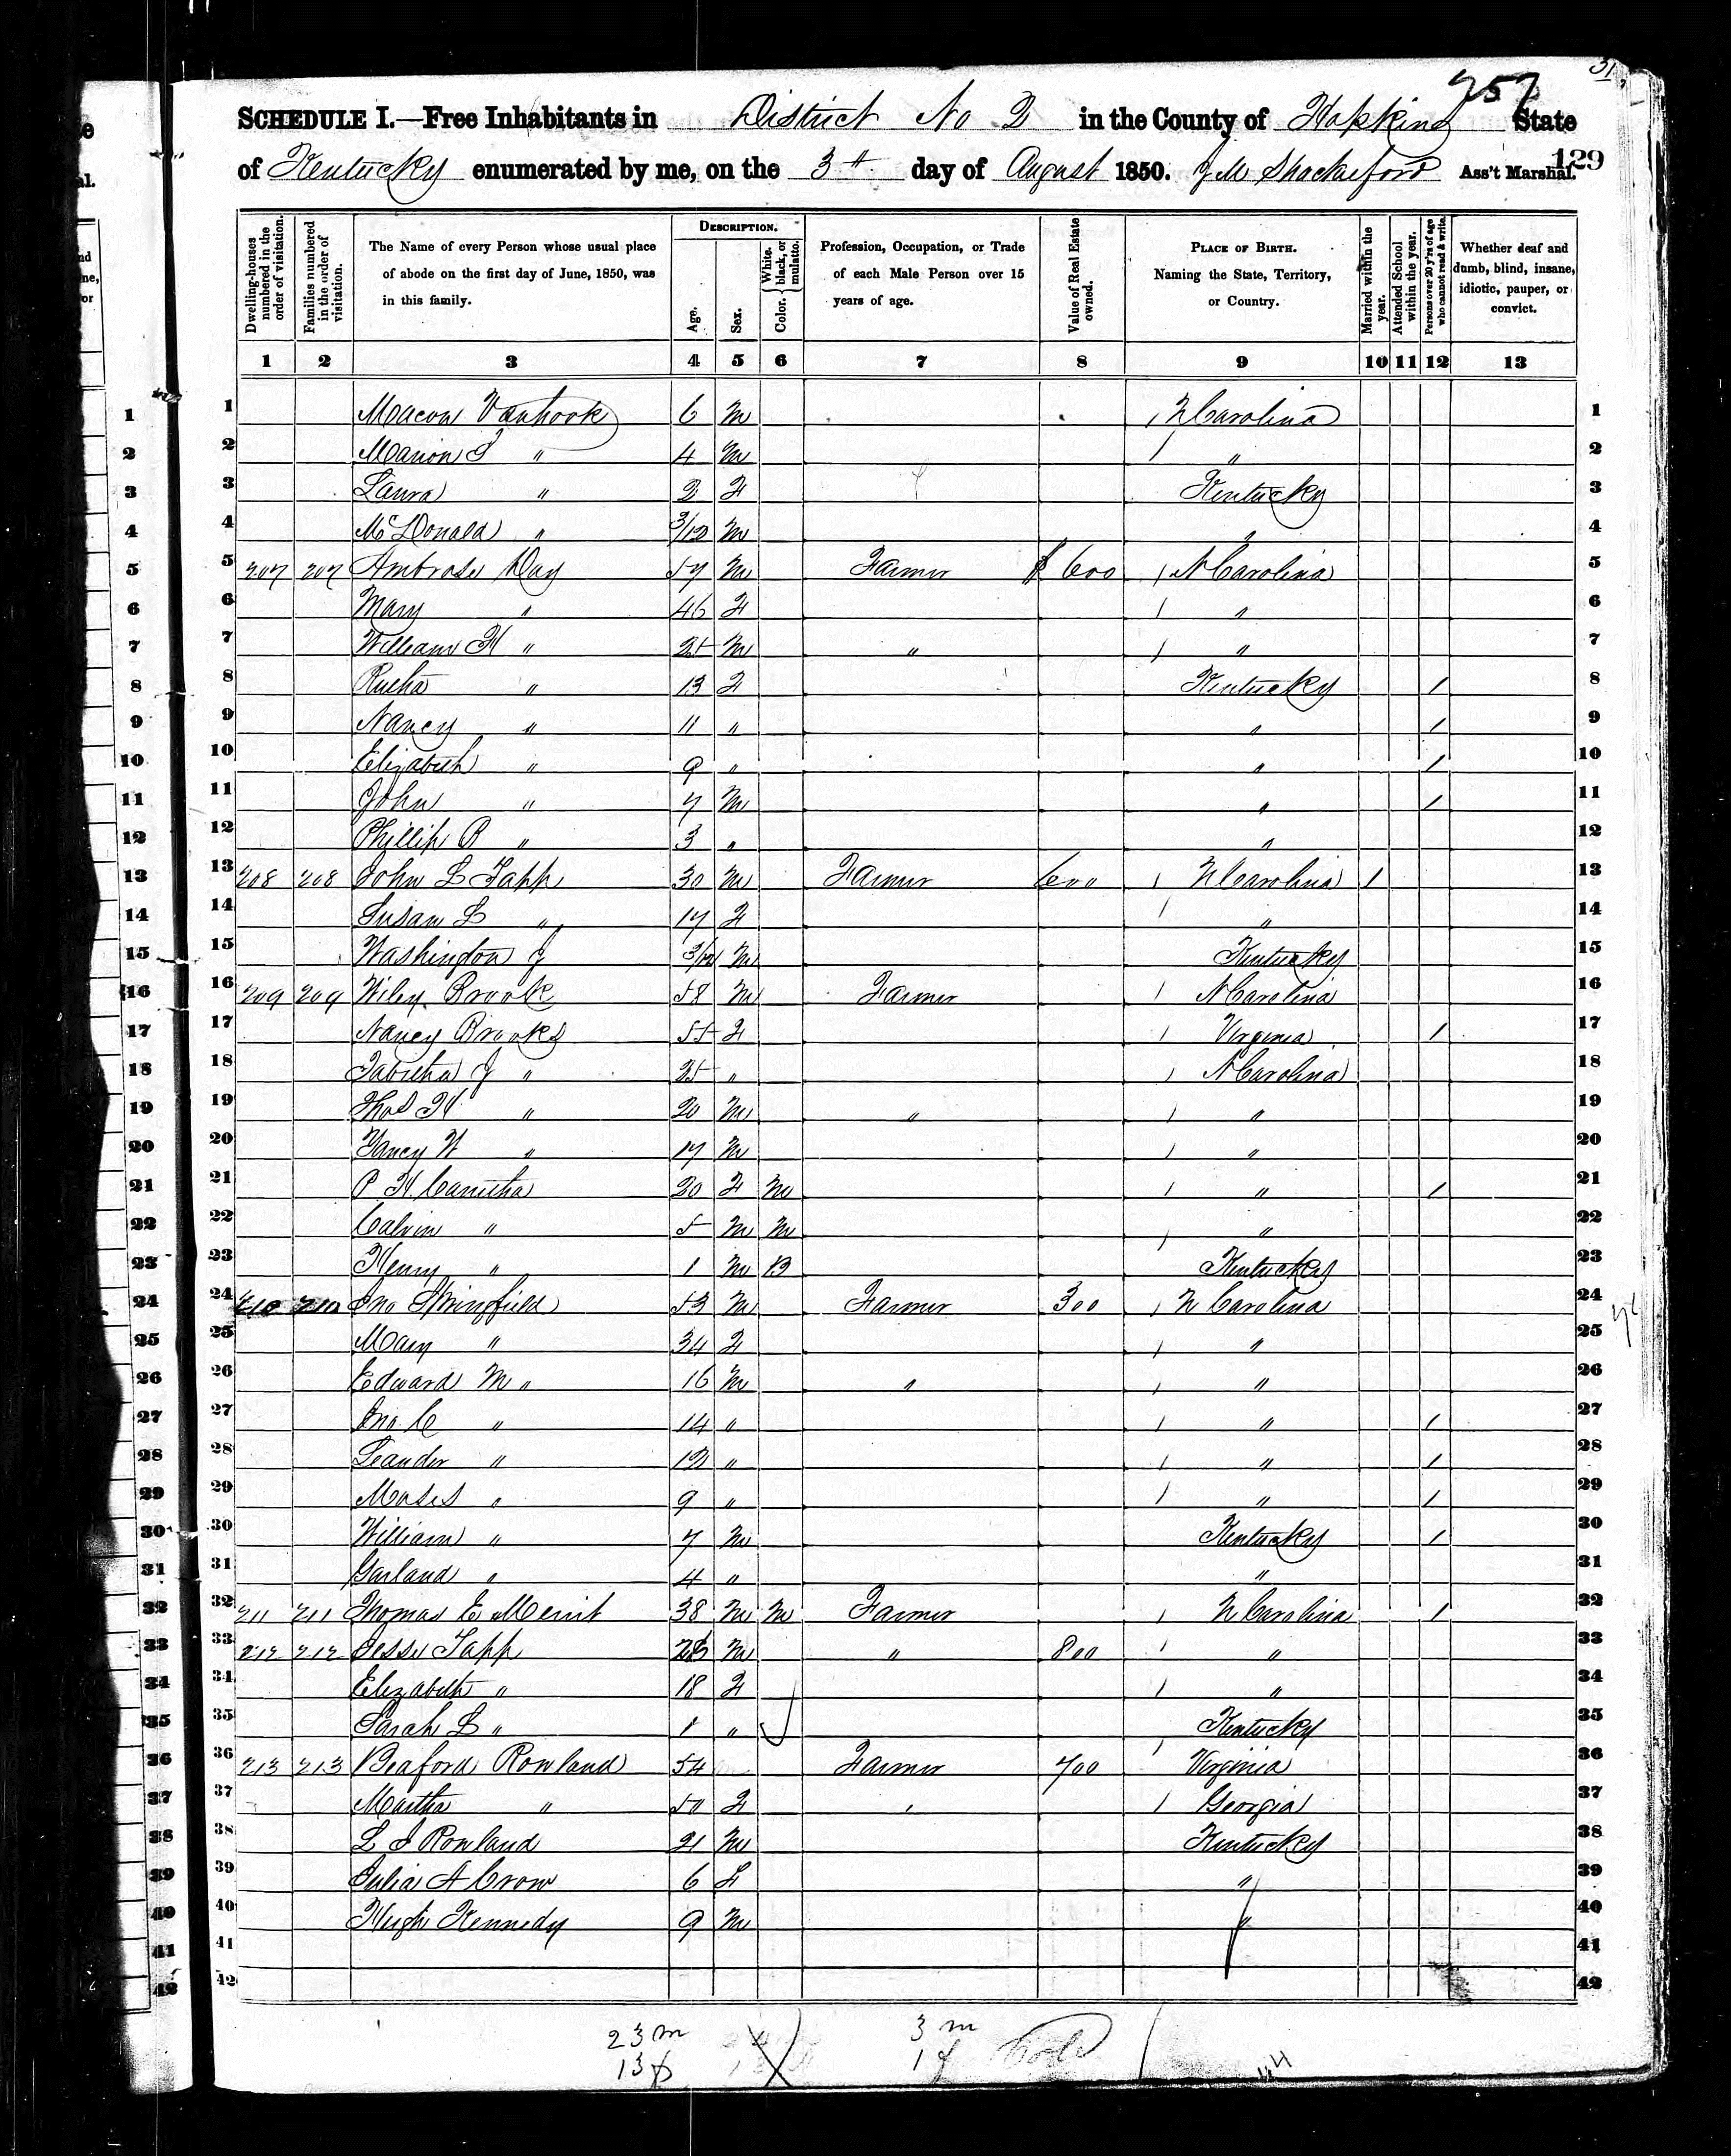 31
257
SCHEDULE I.—Free Inhabitants in District No 2 in the County of Hopkins State
of Kentucky enumerated by me, on the 3d day of August 1850. J M Shackleford Ass't Marshal.
129
Dwelling-houses numbered in the order of visitation.
Families numbered in the order of visitation.
The Name of every Person whose usual place of abode on the first day of June, 1850, was in this family.
DESCRIPTION.
Age.
Sex.
Color. { White, black, or mulatto.
Profession, Occupation, or Trade of each Male Person over 15 years of age.
Value of Real Estate owned.
PLACE OF BIRTH. Naming the State, Territory, or Country.
Married within the year.
Attended School within the year.
Persons over 20 y'rs of age who cannot read & write.
Whether deaf and dumb, blind, insane, idiotic, pauper, or convict.
1 2 3 4 5 6 7 8 9 10 11 12 13
1 Macon Vanhook 6 M / N Carolina 1
2 Marion J " 4 M / " 2
3 Laura " 2 F Kentucky 3
4 McDonald " 3/12 M " 4
5 207 207 Ambrose Day 57 M Farmer $ 600 / N Carolina 5
6 Mary " 46 F / " 6
7 William H " 25 M " / " 7
8 " 13 F Kentucky / 8
9 Nancy " 11 " " / 9
10 Elizabeth " 9 " " / 10
11 John " 7 M " / 11
12 Phillip R " 3 " " 12
13 208 208 John L Tapp 30 M Farmer 600 / N Carolina / 13
14 Susan L " 17 F / " 14
15 Washington J 3/12 M Kentucky 15
16 209 209 Wiley Brook 58 M Farmer / N Carolina 16
17 Nancy Brooks 55 F / Virginia / 17
18 Tabitha J " 25 " / N Carolina 18
19 Thos H " 20 M " / " 19
20 Yancy W " 17 M / " 20
21 P H Canitha 20 F M / " / 21
22 Calvin " 5 M M / " 22
23 Henry " 1 M B Kentucky 23
24 210 210 Jno Springfield 53 M Farmer 300 / N Carolina 24
25 Mary " 34 F / " 25
26 Edward M " 16 M " / " 26
27 Jno C " 14 " / " / 27
28 Leander " 12 " / " / 28
29 Moses " 9 " / " / 29
30 William " 7 M Kentucky / 30
31 Garland " 4 " " 31
32 211 211 Thomas E Merrit 38 M M Farmer / N Carolina / 32
33 212 212 Jesse Tapp M " 800 / " 33
34 Elizabeth " 18 F / " 34
35 Sarah L " 1 " Kentucky 35
36 213 213 Beaford Rowland 54 Farmer 700 / Virginia 36
37 Martha " 50 F / Georgia 37
38 L J Rowland 21 M Kentucky 38
39 Julia A Crow 6 F " 39
40 Hugh Kennedy 9 M " 40
41 41
42 42
23 m 3 m
13 f 1 f Cold